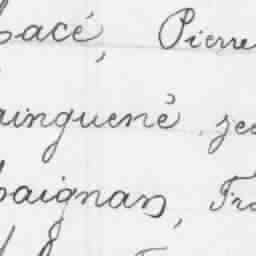 bacé, Pierre
ainguené, jea
baignan, Fra